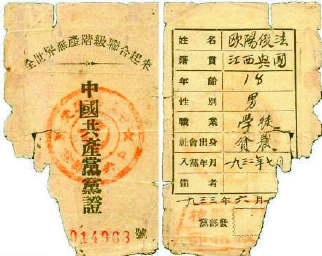 全世界無產階級聯合起來
中國共產黨黨證
014983號
姓名 歐陽 法
籍貫 江西興國
年齡 18
性別 男
職業 學徒
社會出身 貧農
入黨年月 九三二年七
備考
九三三年六月
黨部發